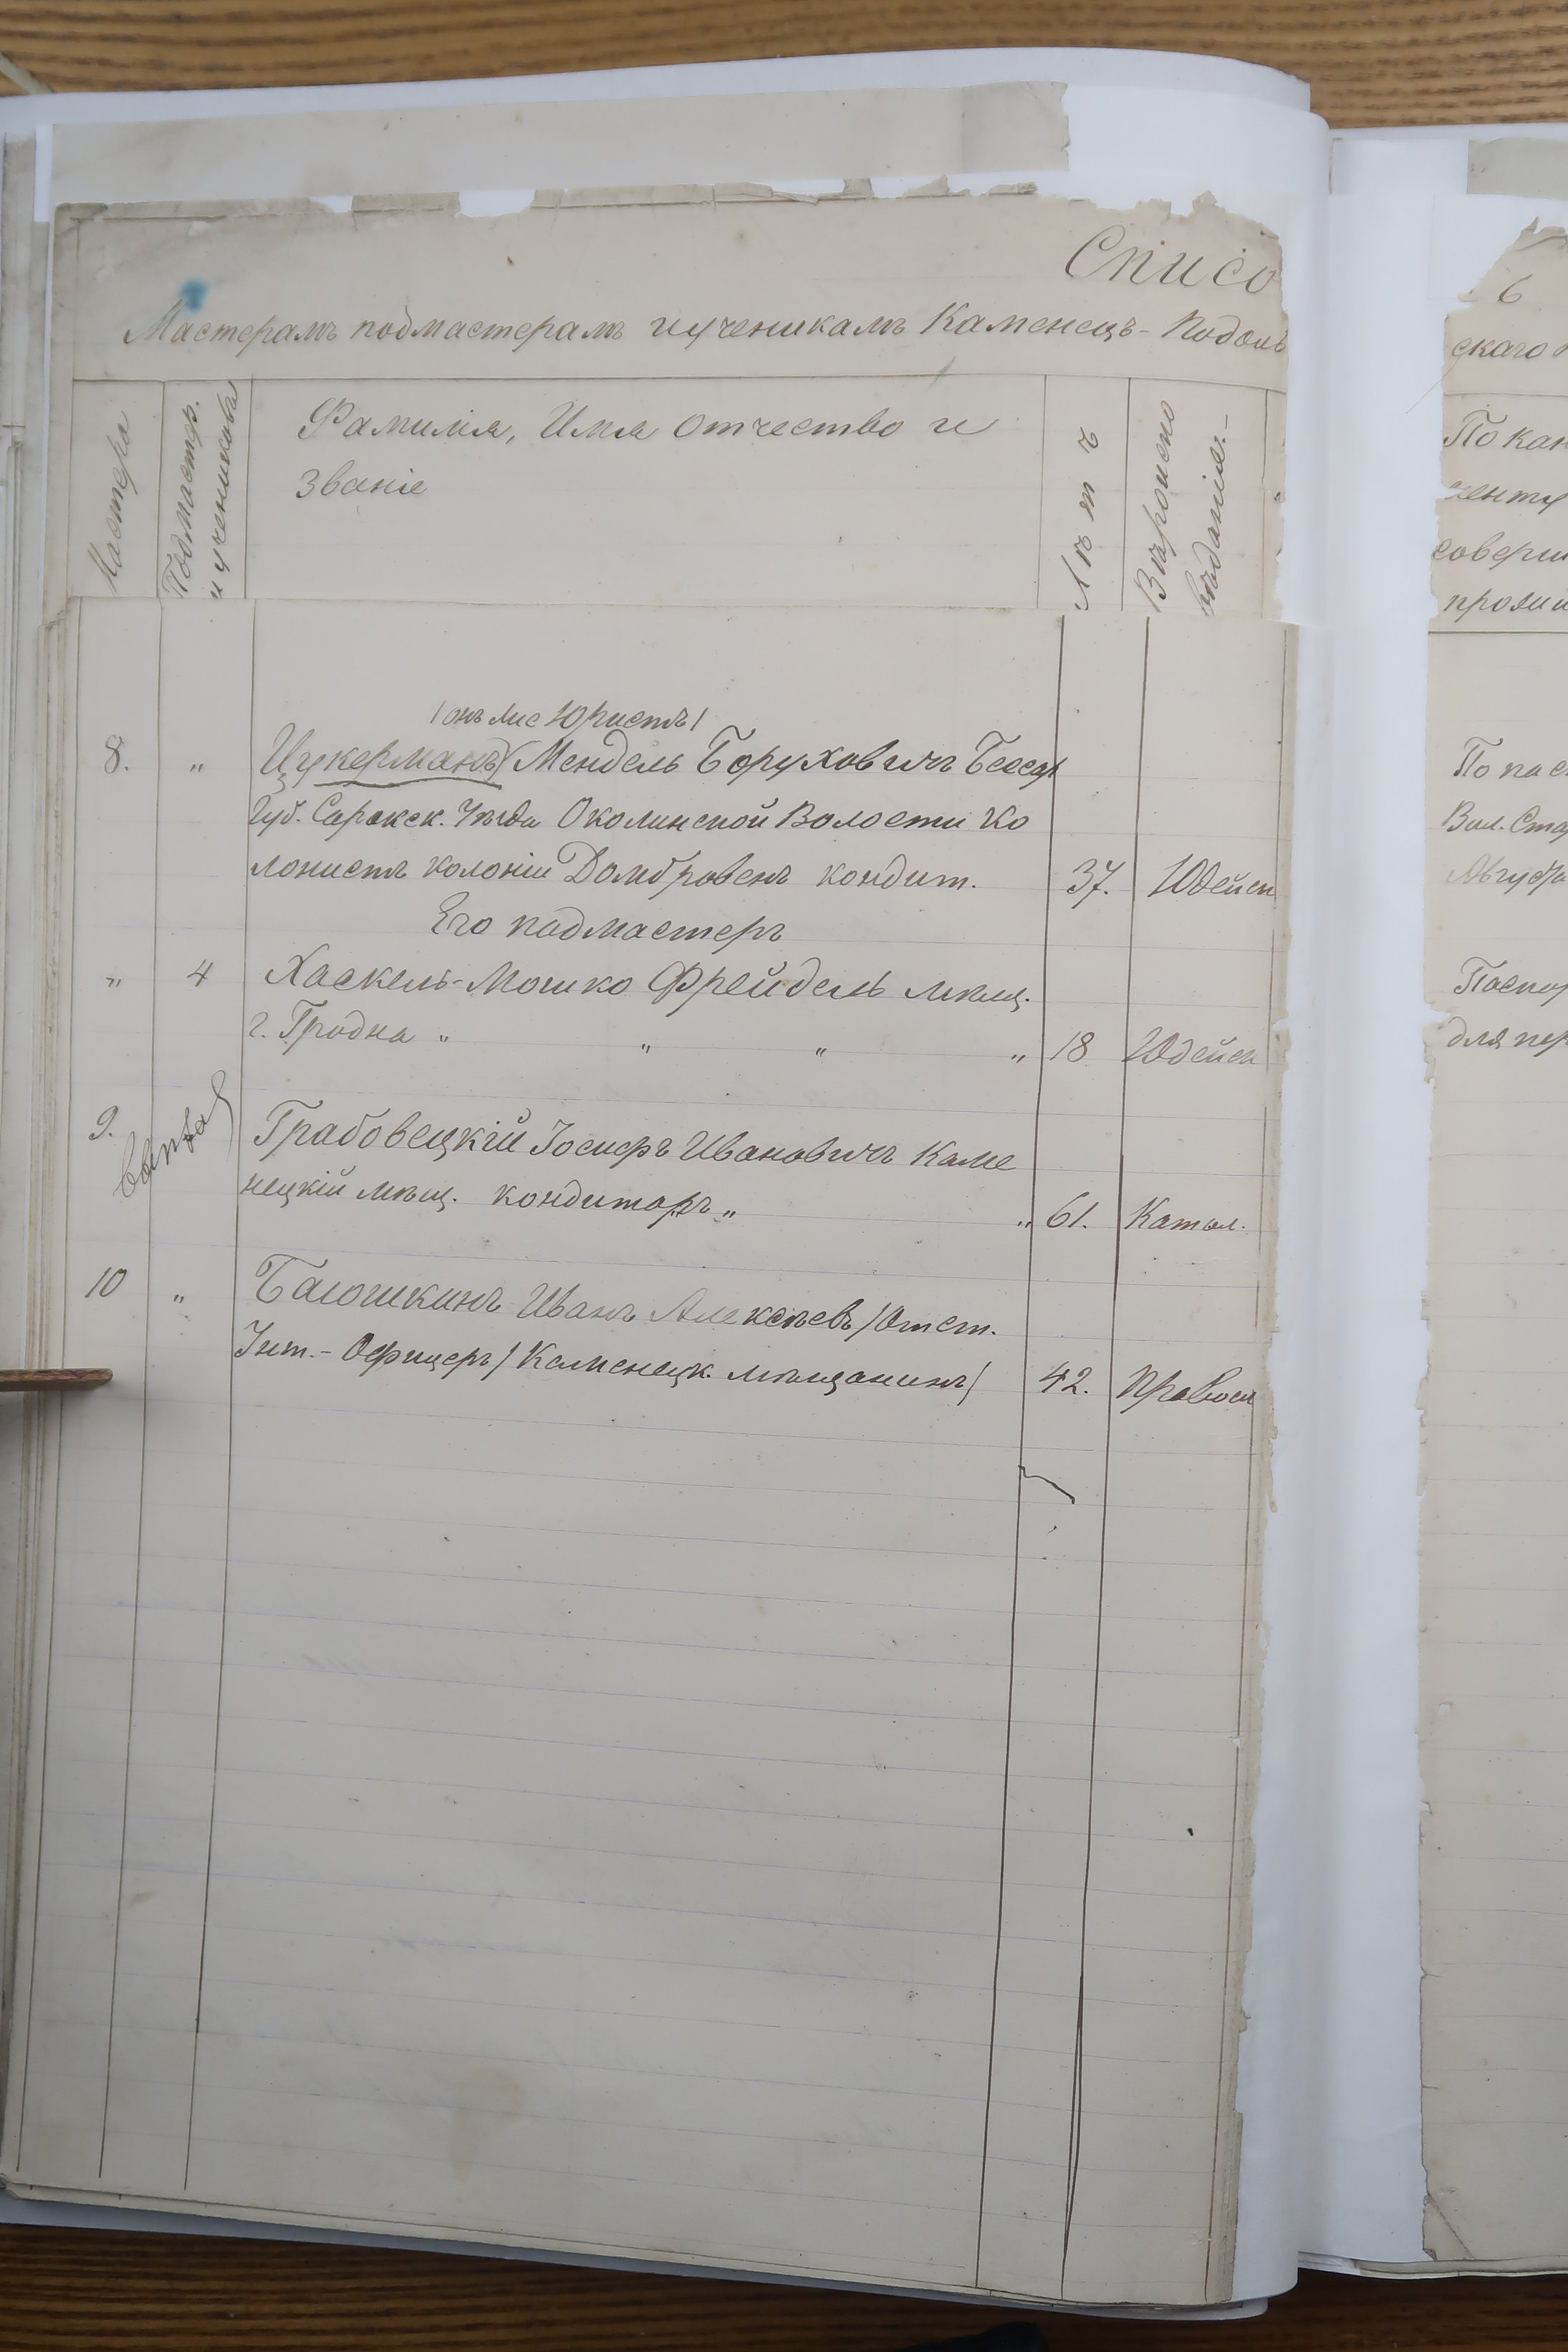 Списо
Мастерамъ подмастерамъ и ученикамъ Каменецъ-Подоль
Мастера
Подмастер.
и учениковъ
Фамилія, Имя Отчество и
Званіе
Лѣтъ
Вѣроиспо
вѣданіе.-
Цукерманъ (Мендель Боруховичъ Бессар
8. „
Губ. Сорокск. Уѣзда Околинской Волости Ко
лонистъ колоніи Домбровенъ кондит. 37. Юдейск
Его подмастеръ
„ 4 Хаскель-Мошко Фрейдель мѣщ.
г. Гродна „ „ „ „ 18 Юдейск
9. Грабовецкій Іосифъ Ивановичъ Каме
нецкій мѣщ. кондиторъ „ „ 61. Катол.
10 „ Иванъ Алексѣевъ /Отст.
Унт.-Офицеръ/ Каменецк. мѣщанинъ/ 42. Правосл
6
ского
По как
менту
соверш
прозви
По пас
Вол. Ста
Августа
Паспор
для пер